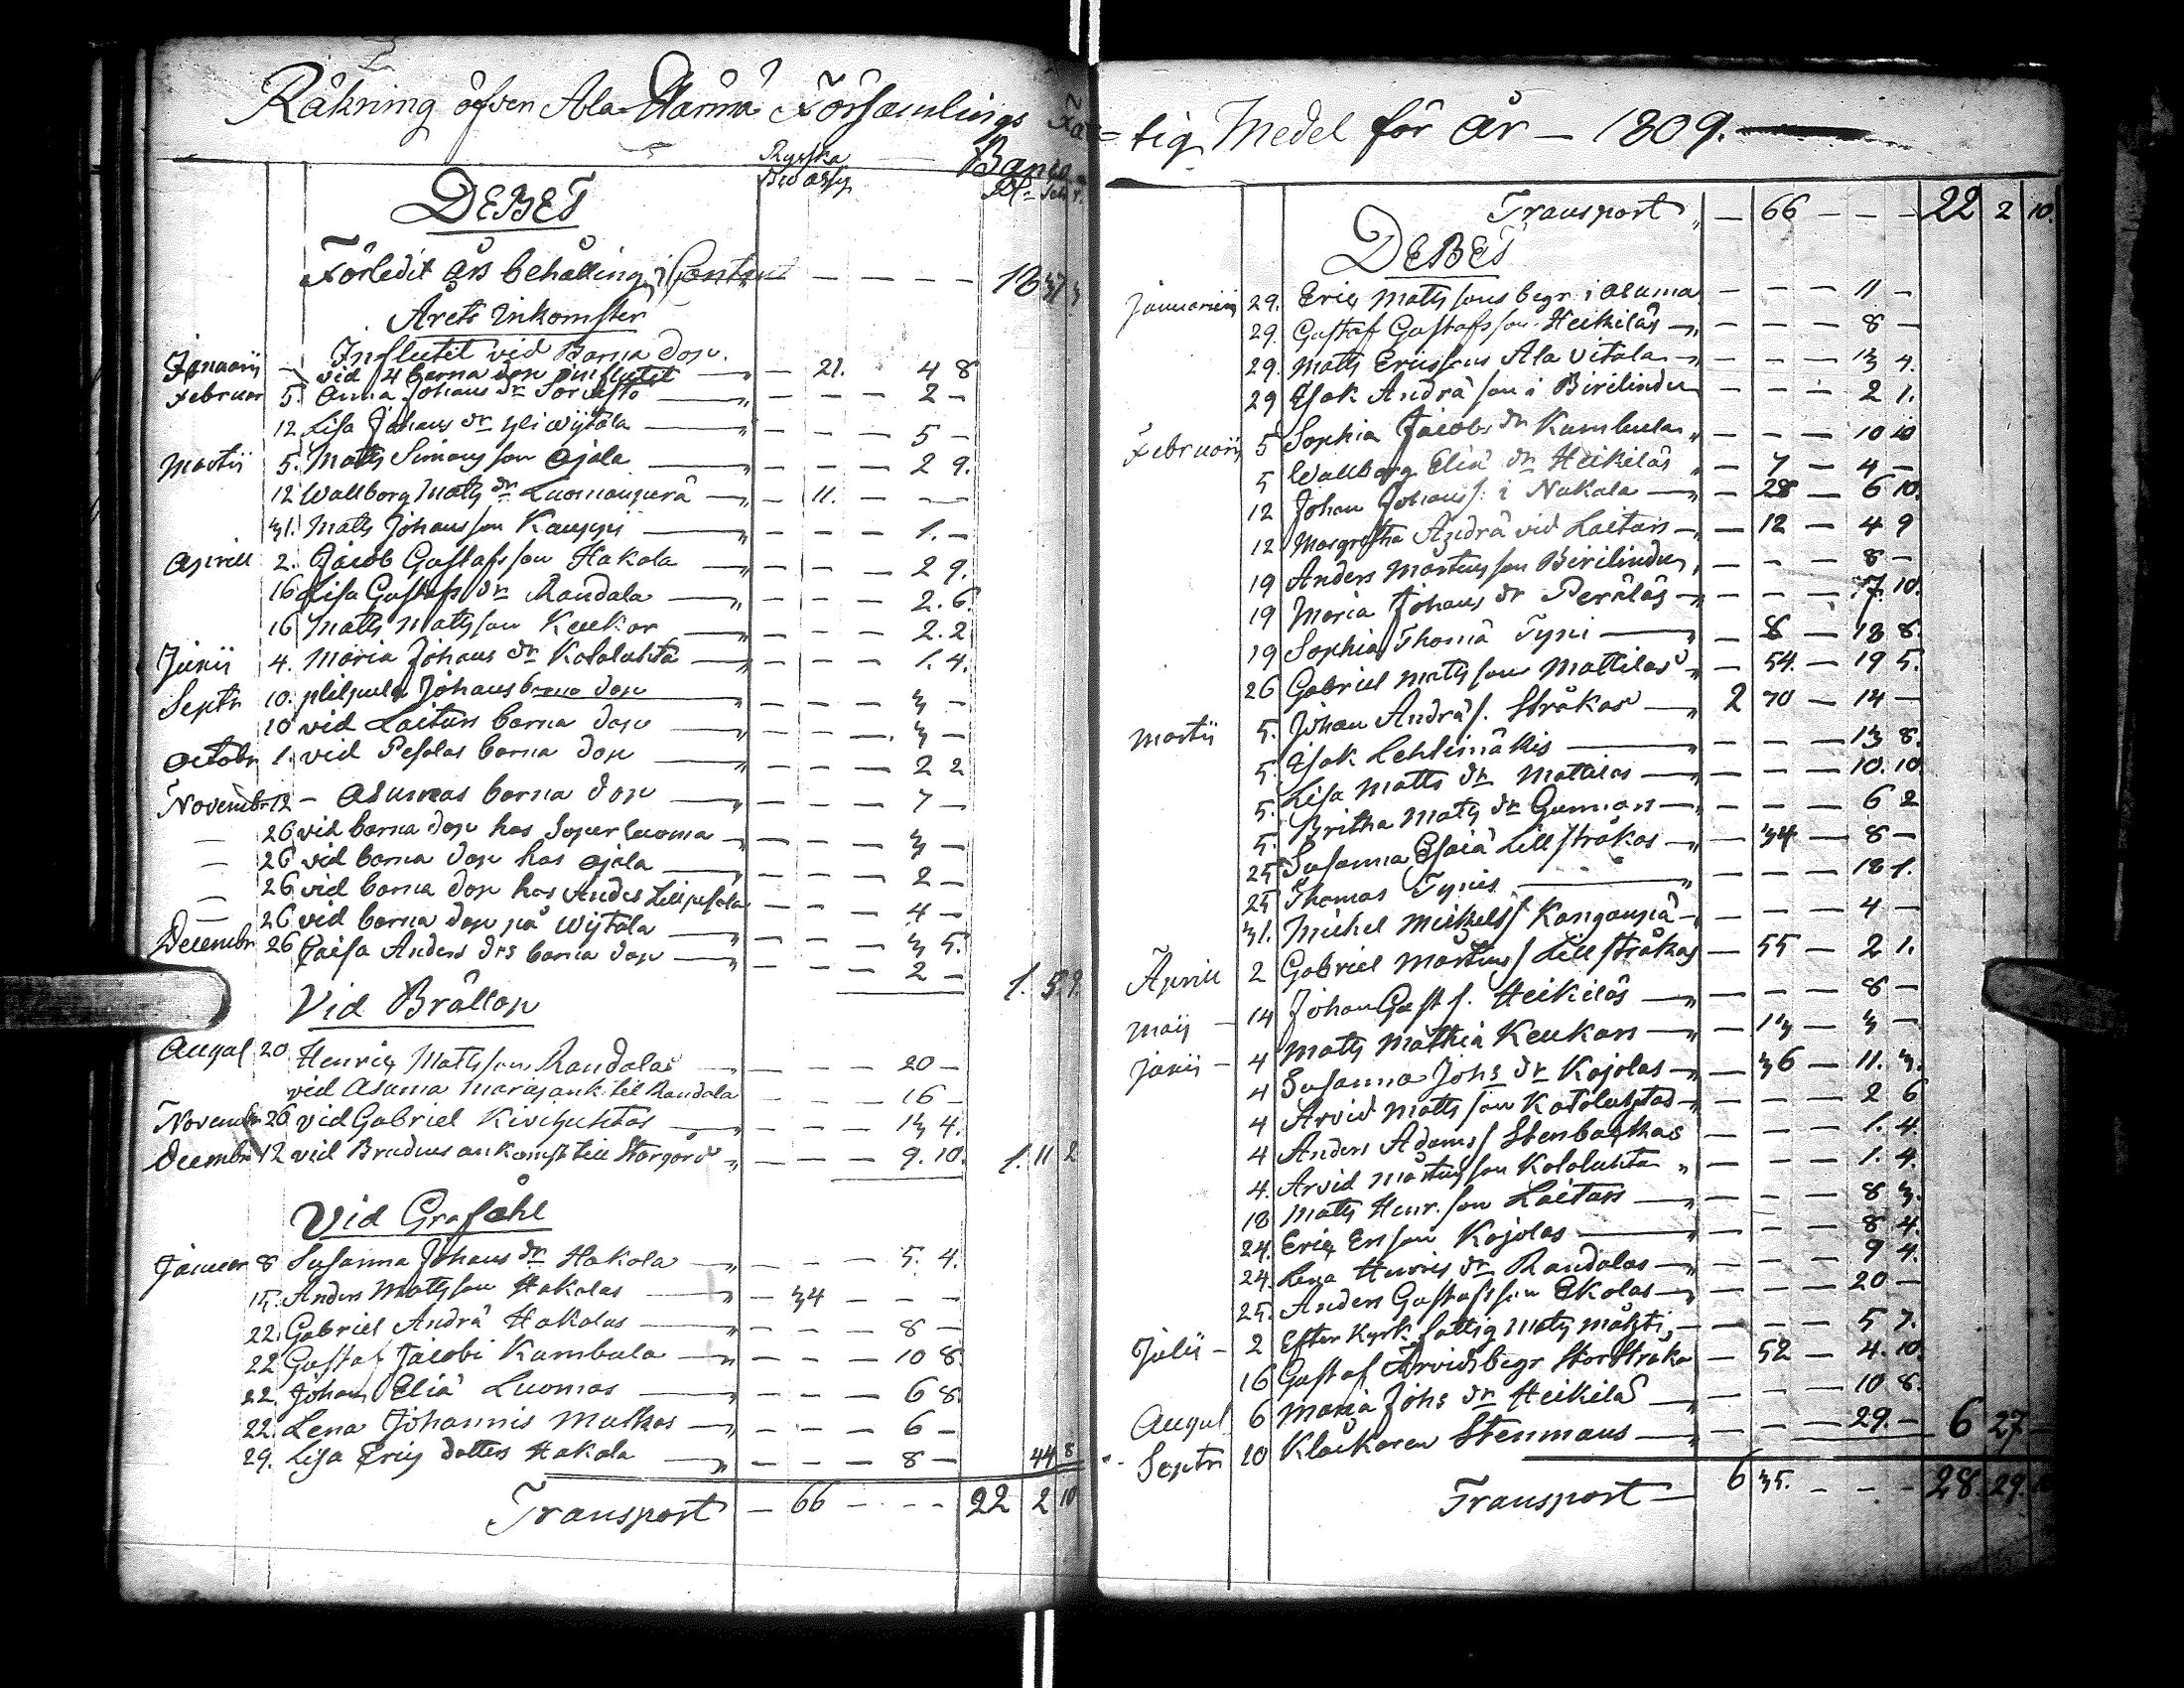 Räkning öfver Ala Härmä Församlings Fat
Ryska Banco
Bco assig Rd. Sch. r.
DEBET
Förledit års behållning i Contant — — — — 18 37 3
Årets Inkomster
Influtit vid Barna dop.
Januarij — vid 4 barna dop influtit — 21. 4 8
Februar 5. Anna Johans dr — — — 2 —
12 Lisa Johans dr yli wijtala — — — 5 —
Martii 5. Matts Simons son Ojala — — — 2 9.
12 Wallborg Mats dr Luomanperä — 11. — —
31. Mats Johansson Kauppi — — — 1. —
Aprill 2. Jacob Gustafsson Hakola — — — 2 9.
16 Lisa Gustafs dr Randala — — — 2. 6.
16 Matts Mattsson Keukor — — — 2. 2.
Junii 4. Maria Johans dr Kololuhta — — — 1. 4.
Septr 10. Johans barna dop — — — 3 —
10 vid Laiturs barna dop — — — 3 —
Octobr 1. vid Pesolas barna dop — — — 2 2
Novembr 12 — Asumas barna dop — — — 7 —
— 26 vid barna dop hos — — — 3 —
— 26 vid barna dop hos Ojala — — — 2 —
— 26 vid barna dop hos Anders Lillpesola — — — 4 —
— 26 vid barna dop på Wijtala — — — 3 5.
Decembr 26 Caisa Anders drs barna dop — — — 2 — 1. 5. 9.
Vid Bröllop
August 20 Henric Mattsson Randalas — — — 20 —
vid Asuma til Randala — — — 16 —
Novembr 26 vid Gabriel — — — 13 4.
Decembr 12 vid Brudens ankomst till Storgård — — — 9. 10. 1. 11 2
Vid Graföhl
Januar 8 Susanna Johans dr Hakola — — — 5. 4.
15. Anders Mattsson Hakolas — 34 — — —
22. Gabriel Andrä Hakolas — — — 8 —
22 Gustaf Jacobi Kambula — — — 10 8.
22. Johan Eliä Luomas — — — 6 8.
22. Lena Johannis Mutkas — — — 6 —
29. Lisa Erics dotters Hakola — — — 8 — 44 8
Transport — 66 — — — 22 2 10
=tig Medel för år — 1809.
Transport — 66 — — — 22 2 10.
DEBET
Januarii 29. Eric Mattssons begr. i Asuma — — — 11 —
29. Gustaf Gustafsson Heikiläs — — — 8 —
29. Matts Ericssons Ala Vitala — — — 13 4.
29 Isak Andrä son i Birilindu — — — 2 1.
Februarij 5 Sophia Jacobs dr Kambula — — — 10 10
5 Wallborg Eliä dr Heikiläs — 7 — 4 —
12 Johan Johanss. i Nukala — 28 — 6 10.
12 Margretha Andrä vid Laiturs — 12 — 4 9
19 Anders Martinsson Birilindu — — — 8 —
19 Maria Johans dr Peräläs — — — 17. 10.
19 Sophia Thomä Tyni — 8 — 18 8.
26 Gabriel Mattssons Mattilas — 54. — 19 5.
Martii 5. Johan Andräs. Stråkas — 2 70 — 14 —
5. Isak Lehtimäkis — — — 13 8.
5. Lisa Matts dr Mattilas — — — 10. 10.
5. Britha Mats dr Gunnars — — — 6 2
25 Susanna Esaiä Lillstråkas — 34 — 8 —
25 Thomas Tynis — — — 18 1.
31. Michel Michels. Kangaspä — — — 4 —
Aprill 2 Gabriel Martins. Lillstråkas — 55 — 2 1.
Maij — 14 Johan Gust s. Heikiläs — — — 8 —
Junii — 4 Mats Mathiä Keukars — 13 — 3 —
4 Susanna Johs dr Kojolas — 36 — 11. 3.
4 Arvid Matts son Kololuhtas — — — 2 6
4 Anders Adams. Stenbackas — — — 1. 4.
4. Arvid Martins son Kololuhta — — — 1. 4.
18 Mats Henr. son Laiturs — — — 8 3.
24. Eric Erson Kojolas — — — 8 4.
24. Lena Henrics dr Randalas — — — 9 4.
25. Anders Gustafsson Ekolas — — — 20 —
Julii — 2 Efter Kyrk fattig Mats — — — 5 7.
16 Gustaf Arvids begr StorStråka — 52 — 4. 10.
August 6 Maria Johs dr Heikilä — — — 10 8.
Septr 10 Klåckaren Stenmans — — — 29. — 6 27 —
Transport — 6 35. — — — 28. 29. 10